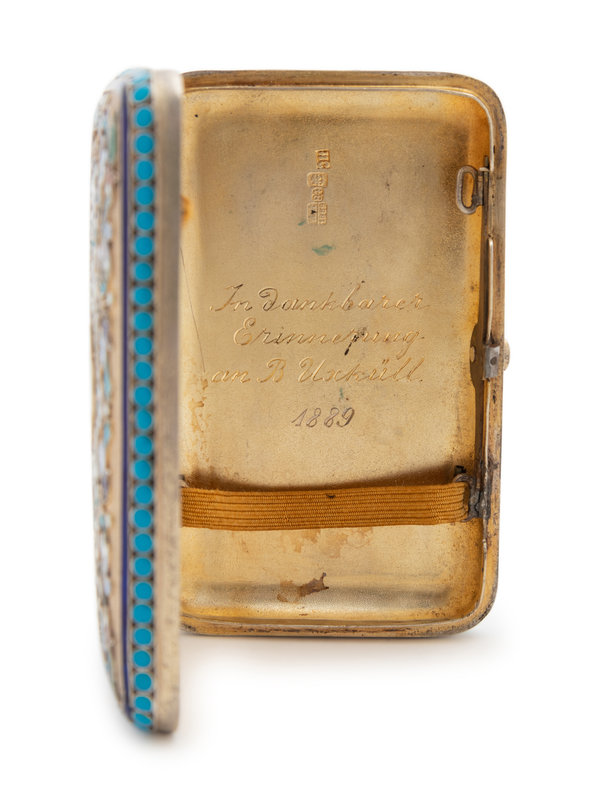 In dankbarer
Erinnerung
an B Uxküll.
1889